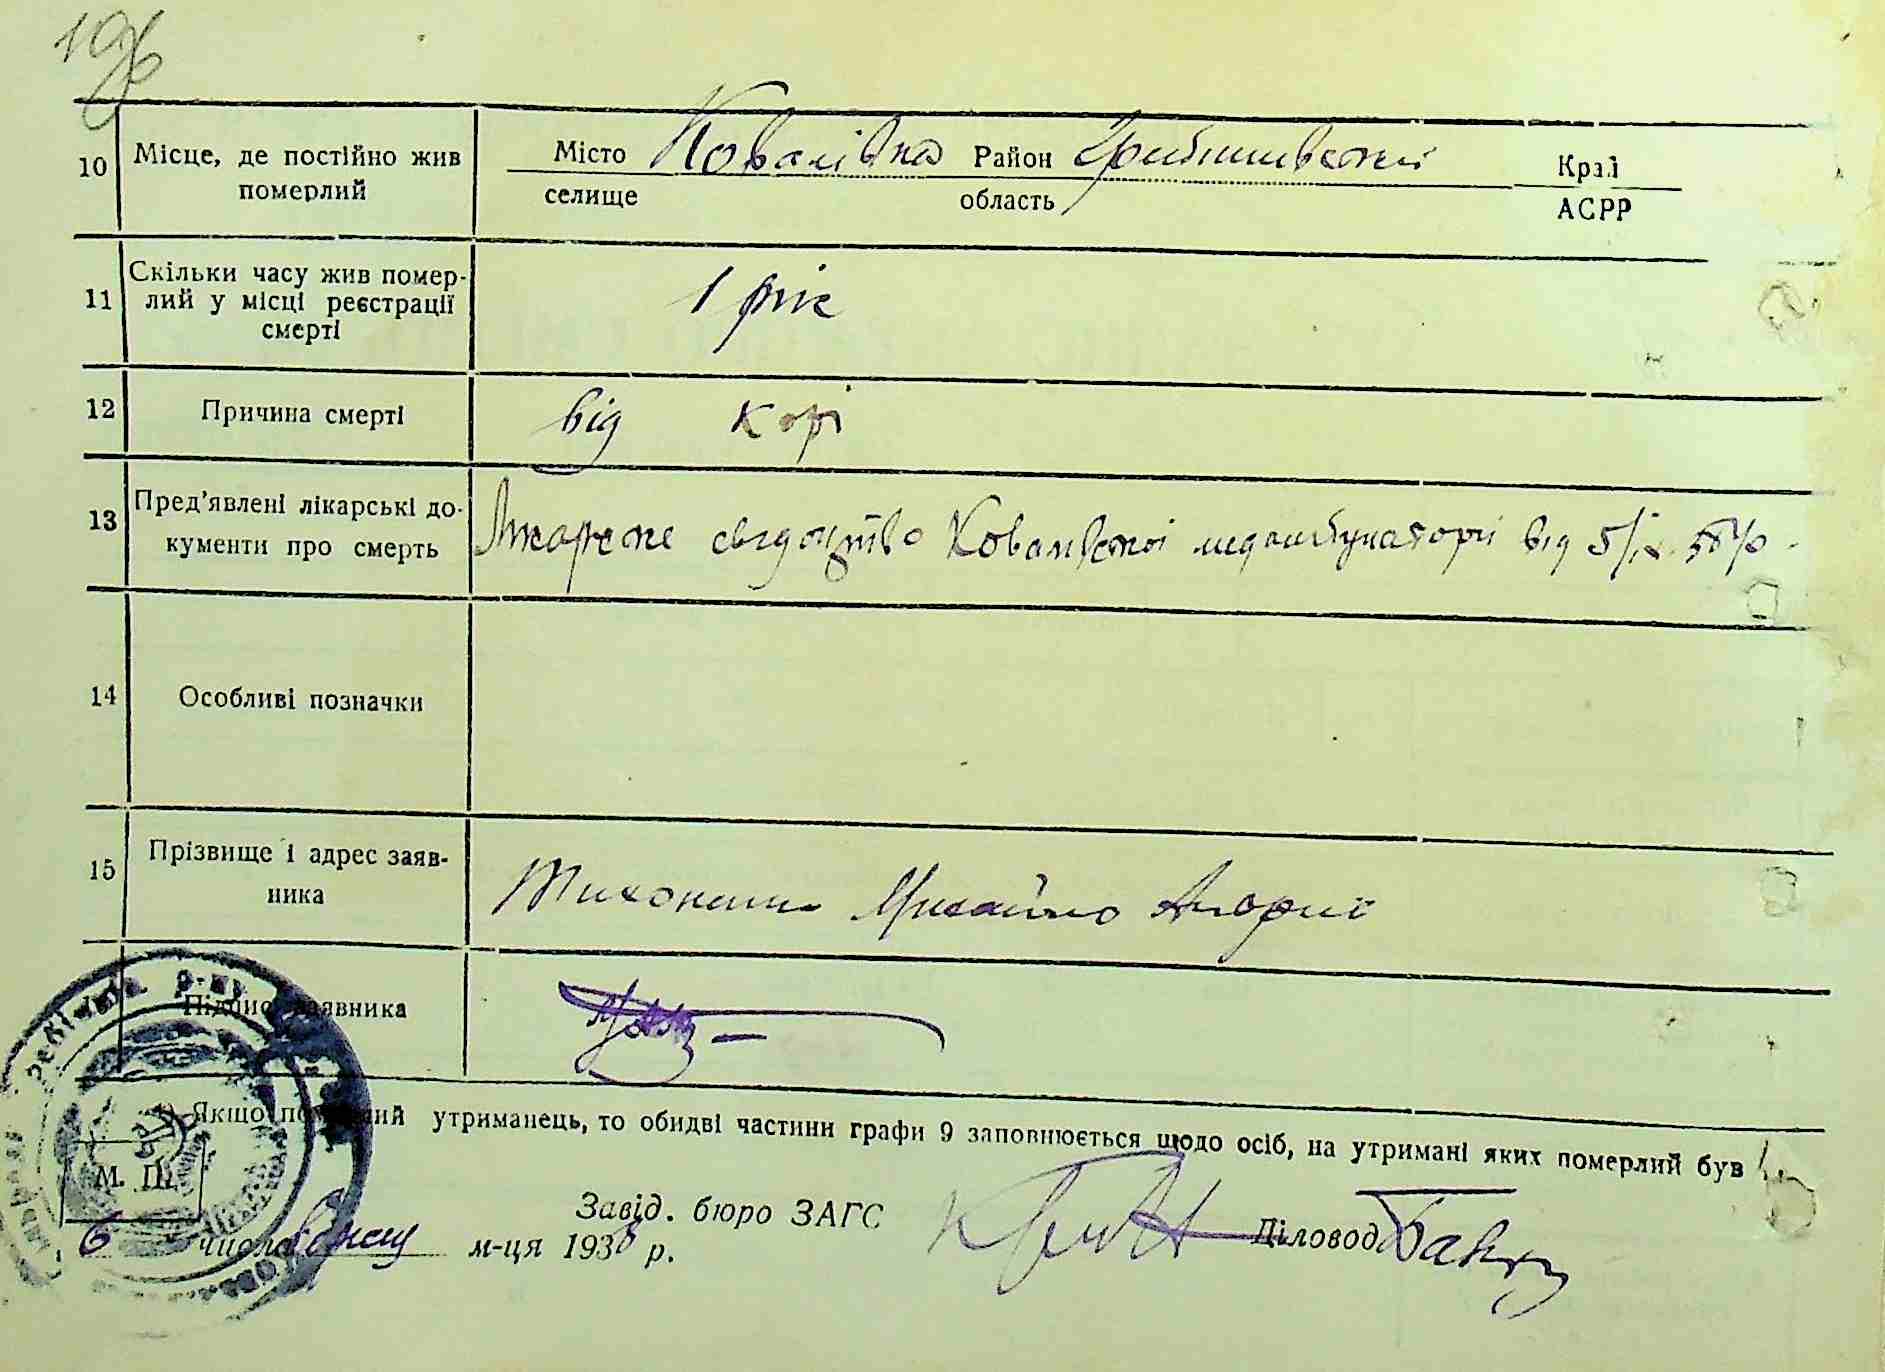 196
10 Місце, де постійно жив Місто Ковалівка Район Гребінківський Край
померлий селище область АСРР
11 Скільки часу жив помер-
лий у місці реєстрації 1 рік
смерті
12 Причина смерті від корі
13 Пред'явлені лікарські до-
кументи про смерть Лікарське свідоцтво Ковалівської медамбулаторії від 5/ІХ
14 Особливі позначки
15 Прізвище і адрес заяв-
ника Михайло
Підпис заявника
¹) Якщо померлий утриманець, то обидві частини графи 9 заповнюється щодо осіб, на утримані яких померлий був
М. П.
Завід. бюро ЗАГС Діловод
6 числа м-ця 1938 р.